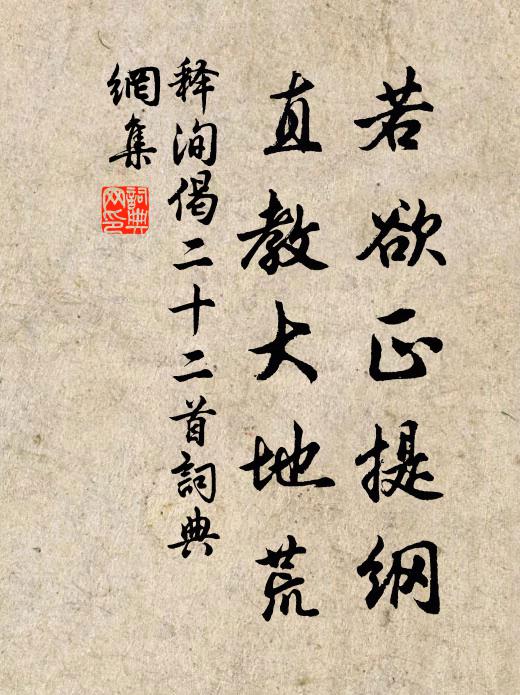 若欲正提綱
直教大地荒
释洵偈二十二首詞典
網集
詞典
网印